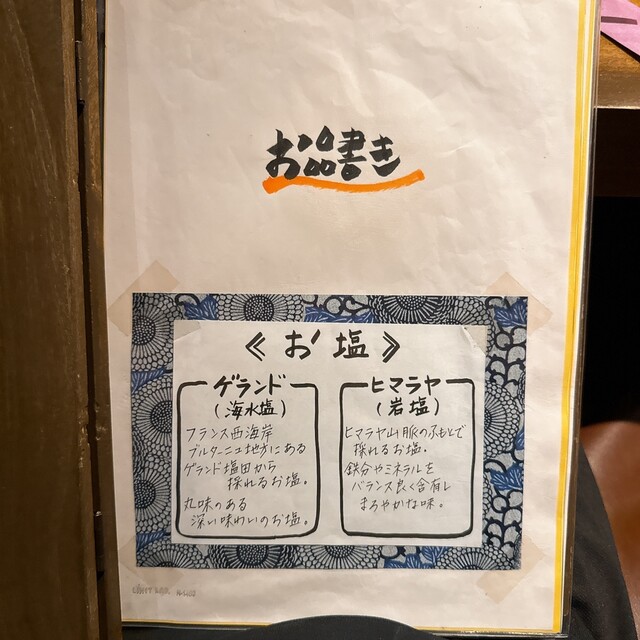 お品書き
《お塩》
ゲランド
(海水塩)
フランス西海岸
ブルターニュ地方にある
ゲランド塩田から
採れるお塩。
丸味のある
深い味わいのお塩。
ヒマラヤ
(岩塩)
ヒマラヤ山脈のふもとで
採れるお塩。
鉄分やミネラルを
バランス良く含有し
まろやかな味。